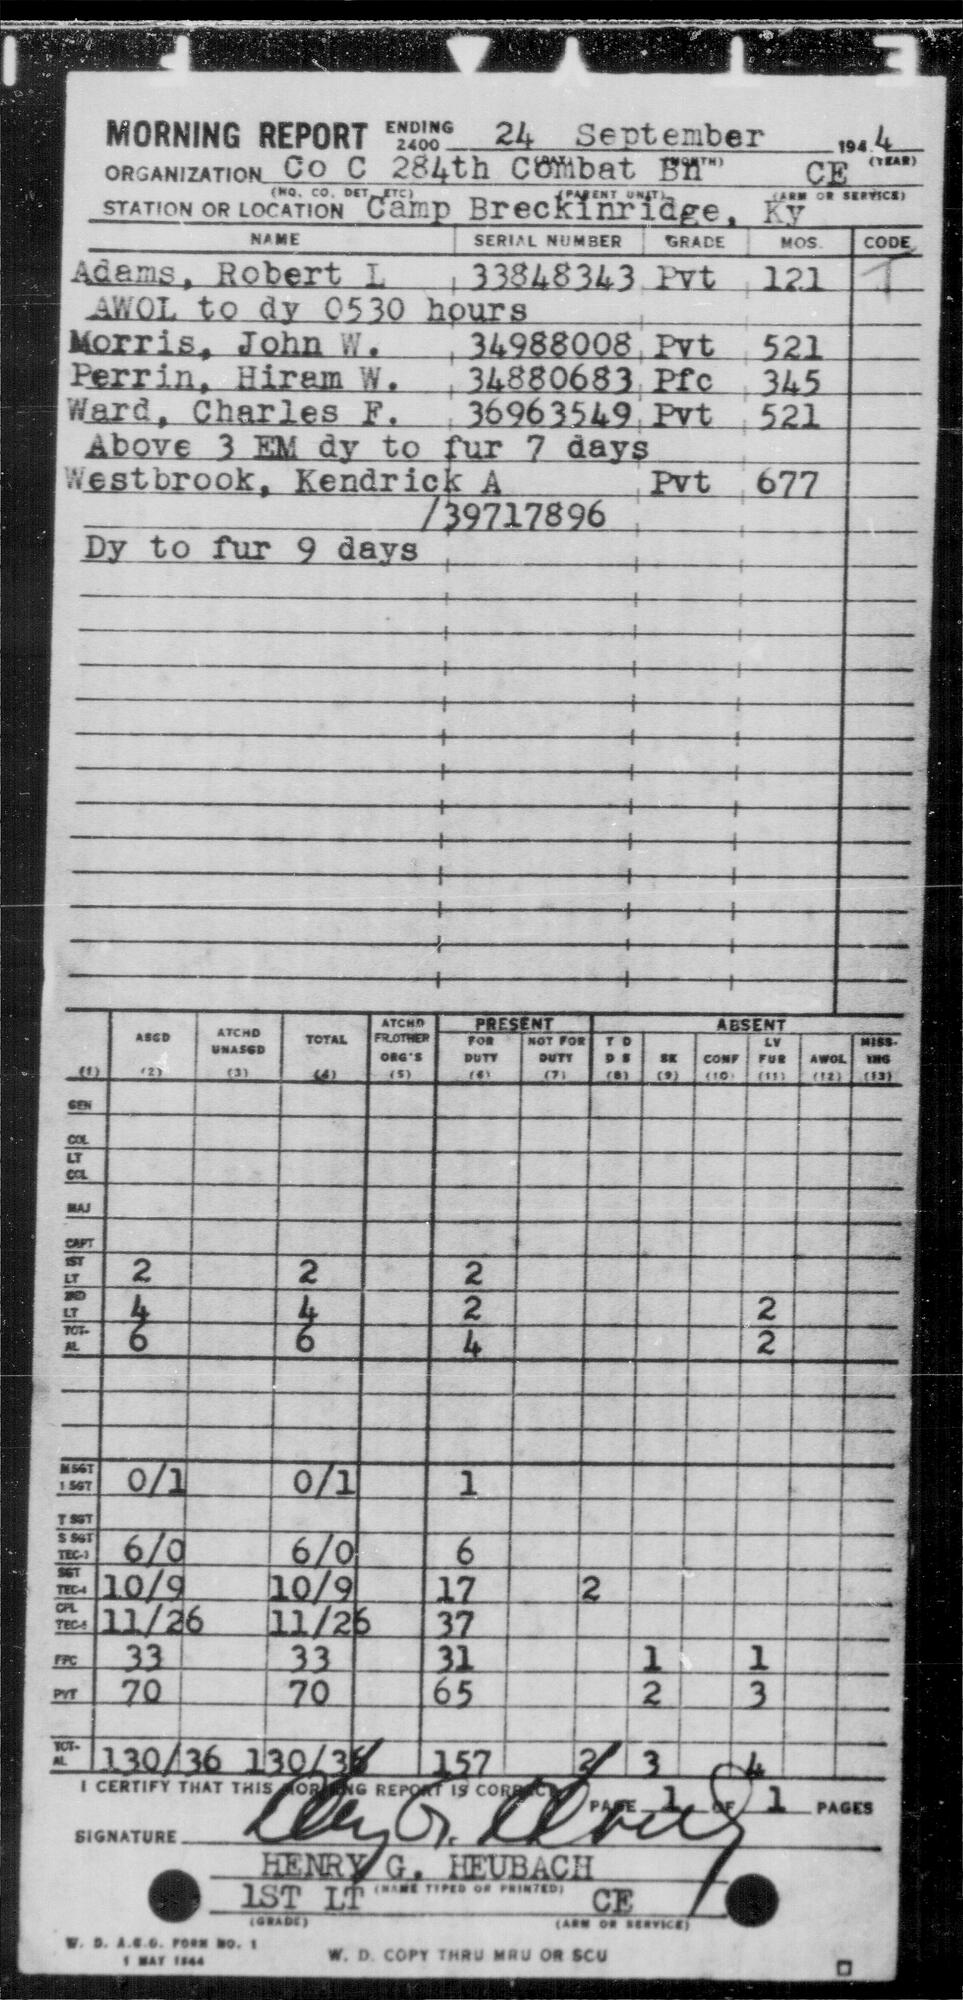 MORNING REPORT ENDING 2400 24 September 1944
(DAY) (MONTH) (YEAR)
ORGANIZATION Co C 284th Combat Bn CE
(NO. CO. DET. ETC) (PARENT UNIT) (ARM OR SERVICE)
STATION OR LOCATION Camp Breckinridge, Ky
NAME SERIAL NUMBER GRADE MOS. CODE
Adams, Robert L 33848343 Pvt 121
AWOL to dy 0530 hours
Morris, John W. 34988008 Pvt 521
Perrin, Hiram W. 34880683 Pfc 345
Ward, Charles F. 36963549 Pvt 521
Above 3 EM dy to fur 7 days
Westbrook, Kendrick A Pvt 677
/39717896
Dy to fur 9 days
PRESENT ABSENT
ASGD ATCHD UNASGD TOTAL ATCHD FR.OTHER ORG'S FOR DUTY NOT FOR DUTY T D D S SK CONF LV FUR AWOL MISS-ING
(1) (2) (3) (4) (5) (6) (7) (8) (9) (10) (11) (12) (13)
GEN
COL
LT COL
MAJ
CAPT
1ST LT 2 2 2
2ND LT 4 4 2 2
TOT-AL 6 6 4 2
M SGT 1 SGT 0/1 0/1 1
T SGT
S SGT TEC-3 6/0 6/0 6
SGT TEC-4 10/9 10/9 17 2
CPL TEC-5 11/26 11/26 37
PFC 33 33 31 1 1
PVT 70 70 65 2 3
TOT-AL 130/36 130/36 157 2 3 4
I CERTIFY THAT THIS MORNING REPORT IS CORRECT
PAGE 1 OF 1 PAGES
SIGNATURE
HENRY G. HEUBACH
(NAME TYPED OR PRINTED)
1ST LT CE
(GRADE) (ARM OR SERVICE)
W. D. A.G.O. FORM NO. 1
1 MAY 1944
W. D. COPY THRU MRU OR SCU